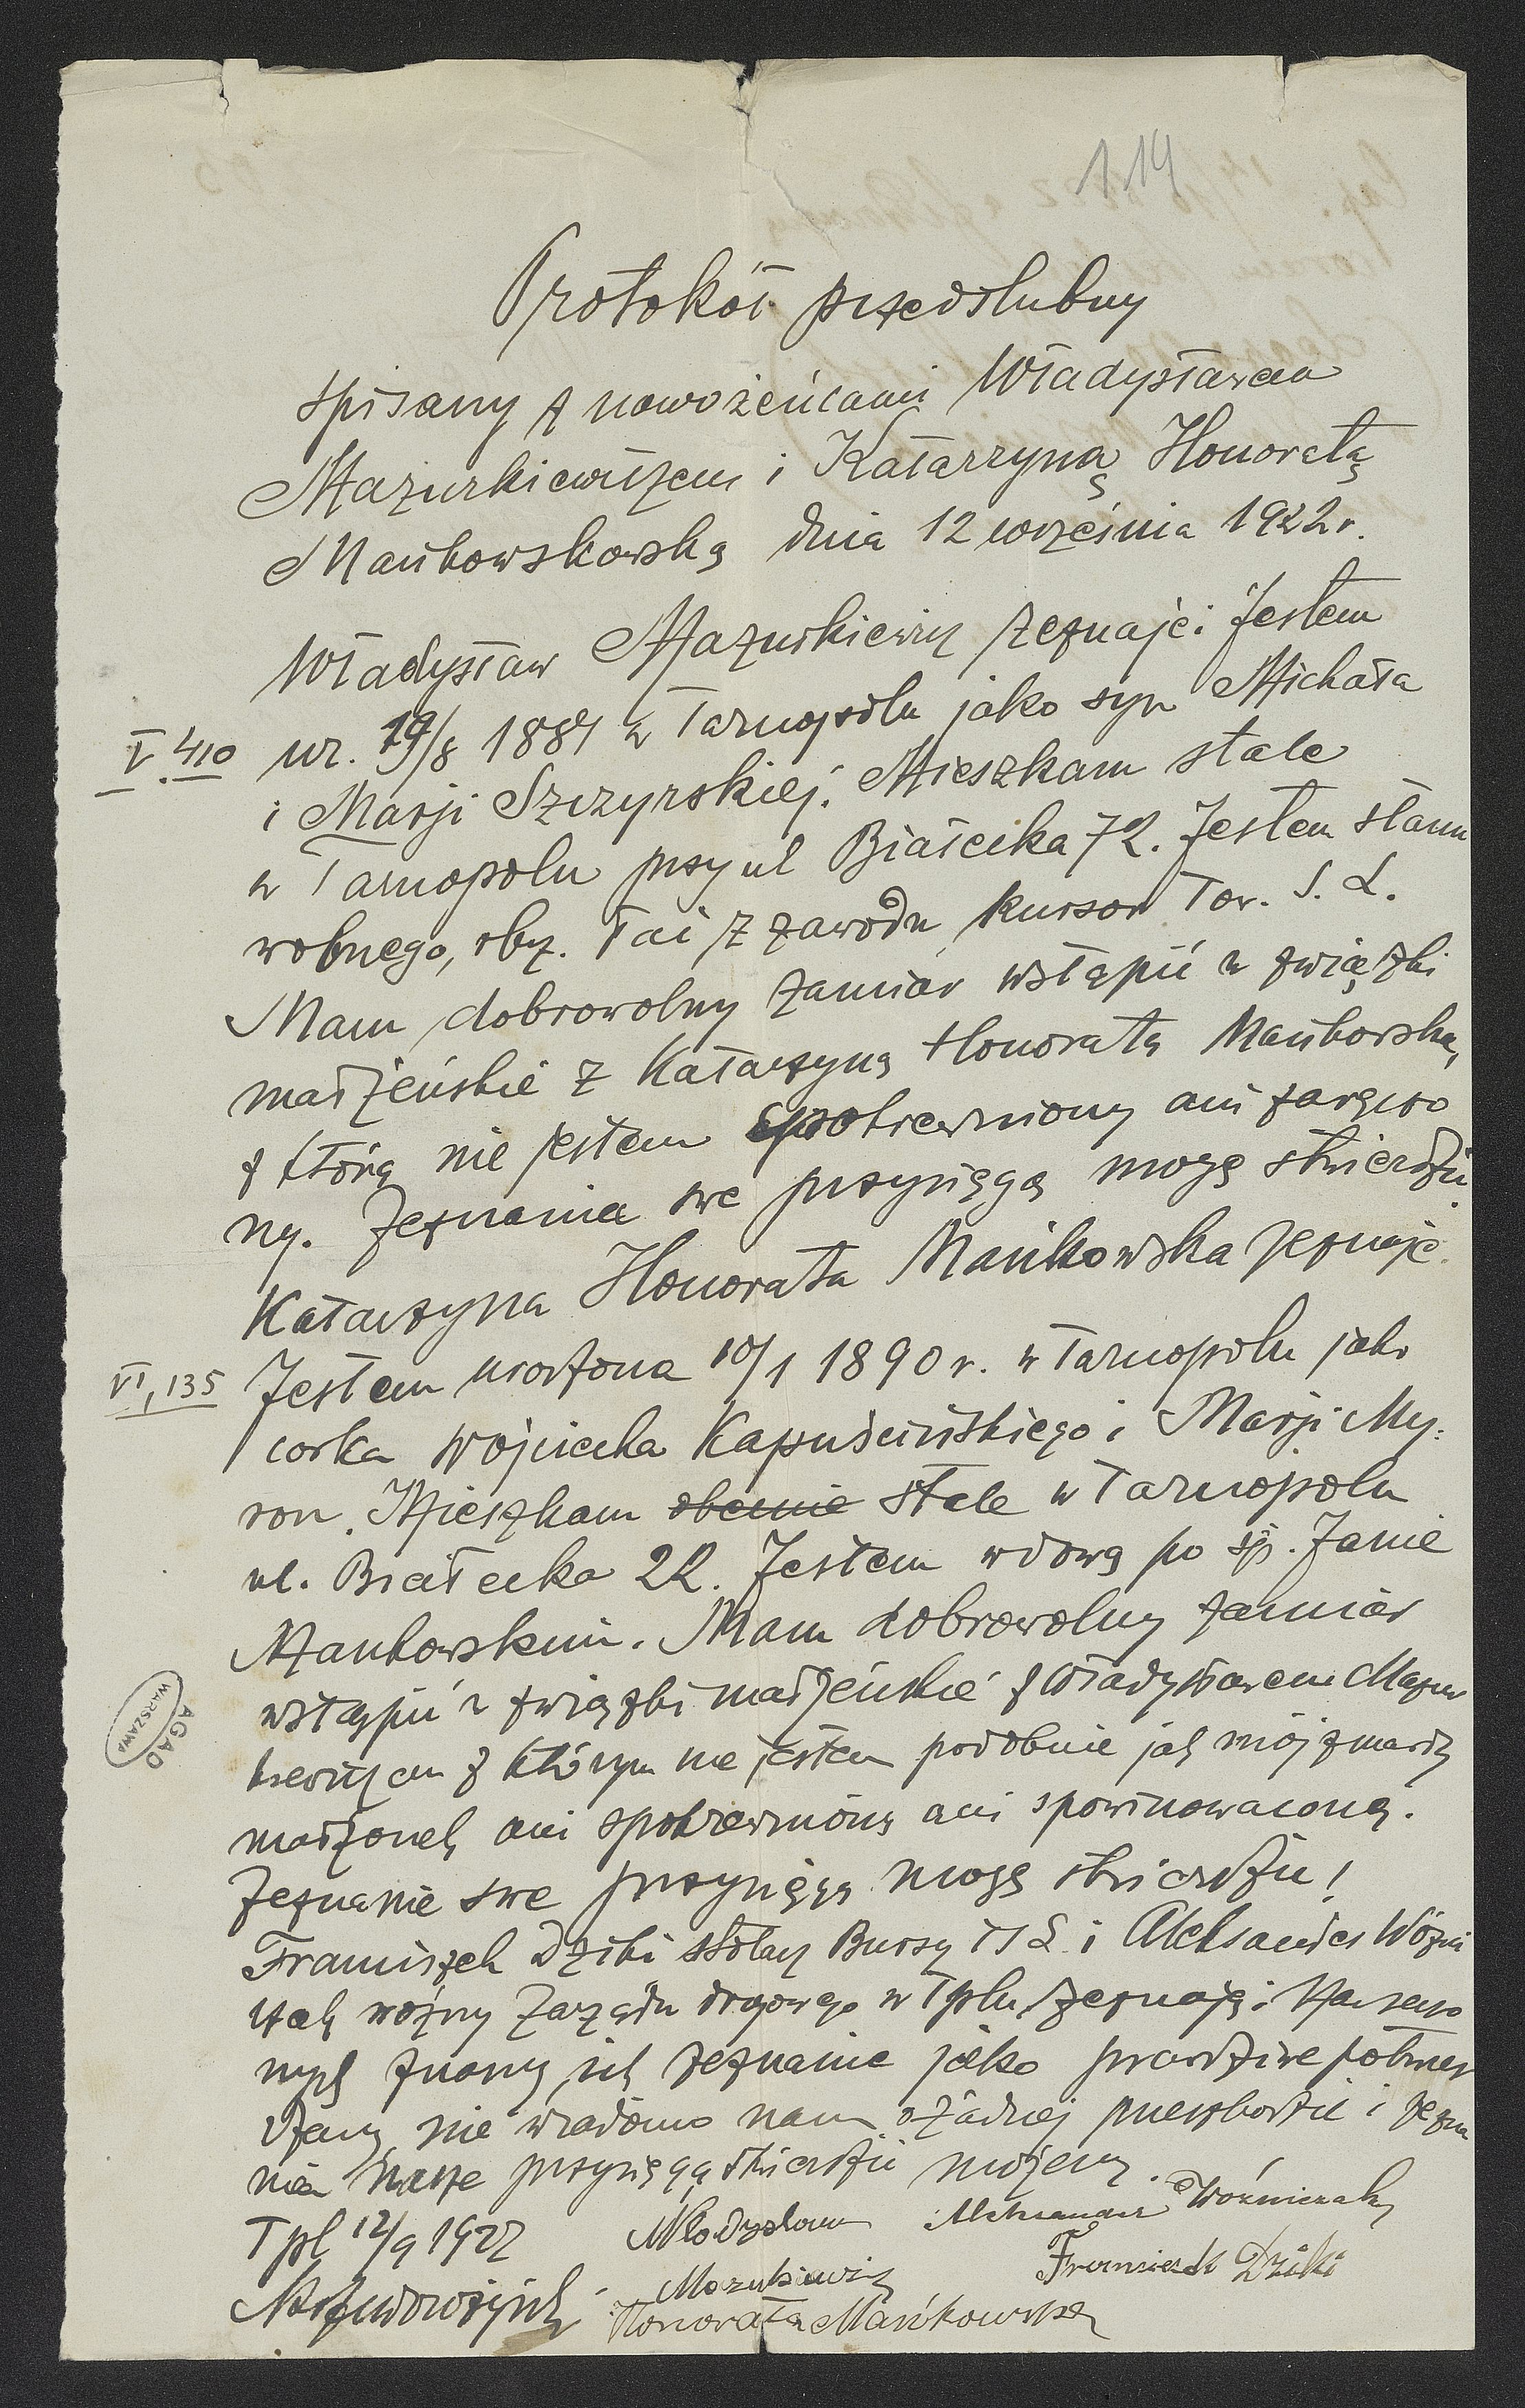 114
Protokół przedślubny
spisany z nowożeńcami Władysławem
Mazurkiewiczem i Katarzyną Honoratą
Mańkowskowską dnia 12 września 1922 r.
Władysław Mazurkiewicz zeznaje: Jestem
V. 410 ur. 19/8 1881 w Tarnopolu jako syn Michała
i Marji Szczyrskiej. Mieszkam stale
w Tarnopolu przy ul Białecka 72. Jestem stanu
wolnego, obrz. łać z zawodu kursor Tow. S. L.
Mam dobrowolny zamiar wstąpić w związki
małżeńskie z Katarzyną Honoratą Mańkowską,
z którą nie jestem spokrewniony ani zaręczo
ny. Zeznania swe przysięgą mogę stwierdzić.
Katarzyna Honorata Mańkowska zeznaje.
VI, 135 Jestem urodzona 10/1 1890 r. w Tarnopolu jako
corka Wojciecha Kapuścińskiego i Marji My:
ron. Mieszkam obecnie stale w Tarnopolu
ul. Białecka 22. Jestem wdową po śp. Janie
Mankowskim. Mam dobrowolny zamiar
wstąpić w związki małżeńskie z Władysławem Mazur
kiewiczem z którym nie jestem podobnie jak mój zmarły
małżonek ani spokrewnioną ani spowinowaconą.
Zeznanie swe przysięgą mogę stwierdzić!
Franciszek Dziki stolarz Bursy TSL i Aleksander Woźni
czak woźny Zarządu drogowego w Tplu zeznają:
nych znamy, ich zeznanie jako prawdziwe potwier
dzamy, nie wiadomo nam o żadnej przeszkodzie i zezna
nia nasze przysięgą stwierdzić możemy.
Tpl 12/9 1922 Władysław Aleksander Woźniczak
Mazurkiewicz Franciszek Dziki
Honorata Mańkowska
AGAD
WARSZAWA